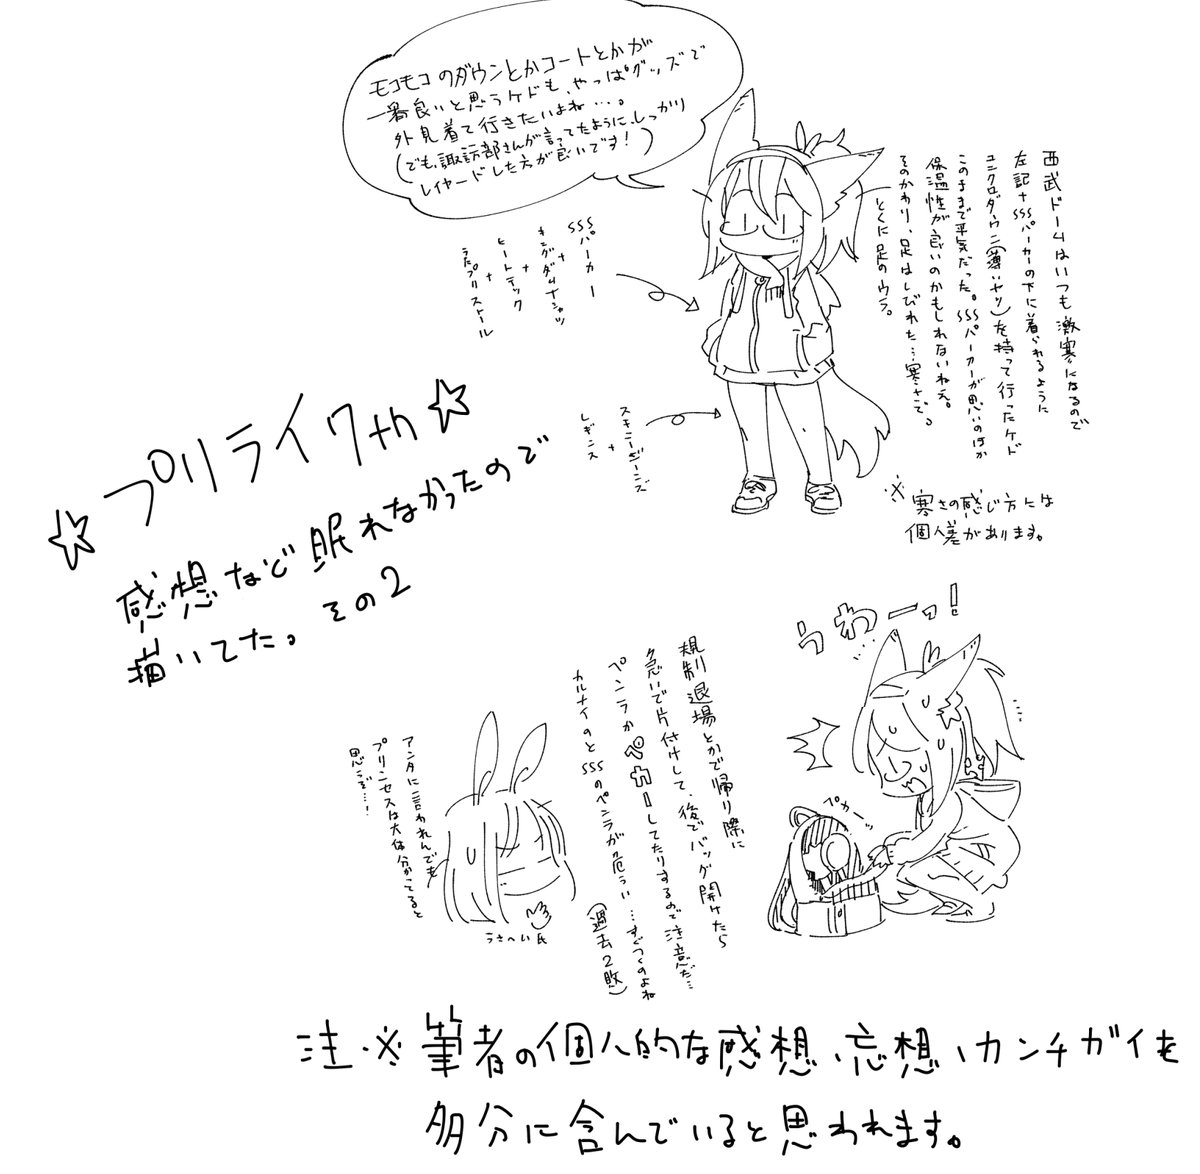 モコモコのダウンとかコートとかが
一番良いと思うケドも、やっぱグッズで
外見着て行きたいよね…。
(でも、諏訪部さんが言ってたように、しっかり
レイヤードした方が良いです!)
西武ドームはいつも激寒になるので
左記+SSSパーカーの下に着られるように
ユニクロダウン(薄いヤツ)を持って行ったケド
このままで平気だった。SSSパーカーが思いのほか
保温性が良いのかもしれないねえ。
そのかわり、足はしびれた…寒さで。
とくに足のウラ。
SSSパーカー
+
キングダムTシャツ
+
ヒートテック
+
うたプリストール
スキニージーンズ
+
レギンス
※寒さの感じ方には
個人差があります。
☆プリライ7th☆
感想など眠れなかったので
描いてた。その2
うわーッ!
規制退場とかで帰り際に
急いで片付けして、後でバッグ開けたら
ペンラがペカーしてたりするので注意だ…
カルナイのとSSSのペンラが危うい…すぐつくのよね
(過去2敗)
ペカーッ
アンタに言われんでも
プリンセスは大体分かってると
思うぞ…!
うさへい氏
注※筆者の個人的な感想、妄想、カンチガイを
多分に含んでいると思われます。